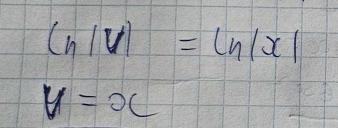 ln|v| = ln|x|
v = x